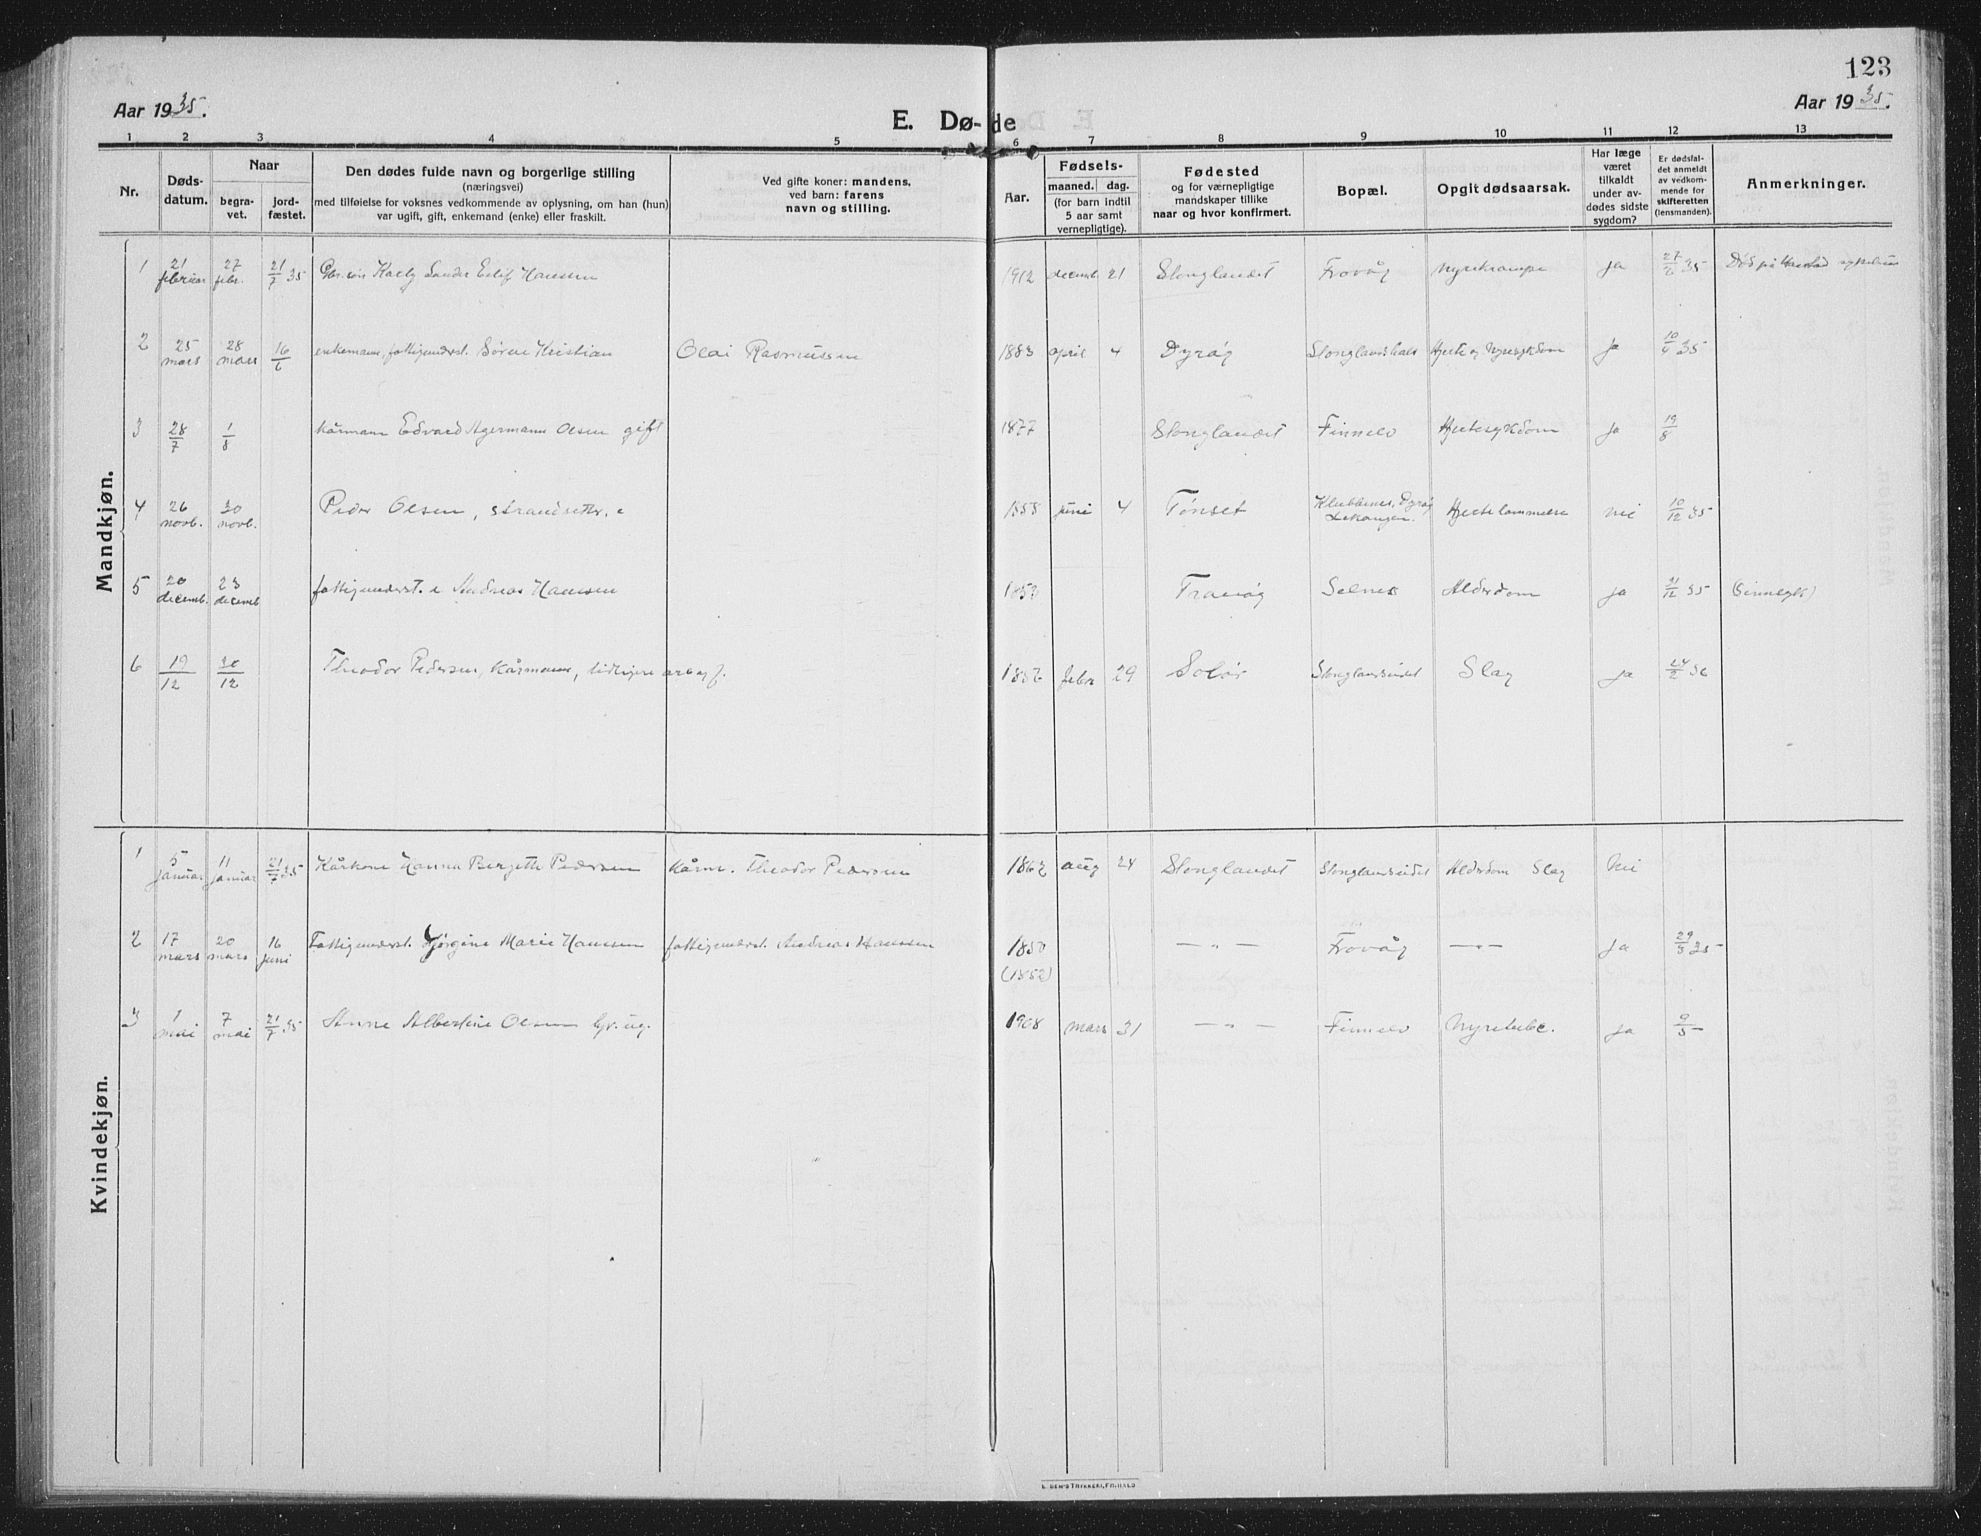 123
Aar 1935.
E. Dø-de
Aar 1935.
1 2 3 4 5 6 7 8 9 10 11 12 13
Nr.
Døds-
datum.
Naar
begra-
vet.
jord-
fæstet.
Den dødes fulde navn og borgerlige stilling
(næringsvei)
med tilføielse for voksnes vedkommende av oplysning, om han (hun)
var ugift, gift, enkemand (enke) eller fraskilt.
Ved gifte koner: mandens,
ved barn: farens
navn og stilling.
Aar.
Fødsels-
maaned. dag.
(for barn indtil
5 aar samt
vernepligtige).
Fødested
og for værnepligtige
mandskaper tillike
naar og hvor konfirmert.
Bopæl.
Opgit dødsaarsak.
Har læge
været
tilkaldt
under av-
dødes sidste
sygdom?
Er dødsfal-
det anmeldt
av vedkom-
mende for
skifteretten
(lensmanden).
Anmerkninger.
Mandkjøn.
1 21 februar 27 febr. 21/7 35 Hansen 1912 decemb 21 Stonglandet Frovåg nyrekrampe ja 27/6 35 Død på Harstad sykehus
2 25 mars 28 mars 16/6 enkemann, fattigunderst. Sören Kristian Olai Rasmussen 1883 april 4 Dyröy Stonglandshals Hjerte og Nyresykdom Ja 10/4 35
3 28/7 1/8 kårmann Edvard Agermann Olsen gift 1877 Stonglandet Finnelv Hjertesykdom Ja 19/8
4 26 novb. 30 novb. Peder Olsen, strandsitter, e 1855 juni 4 Tønset Klubbenes, Dyröy Hjertelammelse nei 10/12 35
5 20 decemb. 23 decemb fattigunderst. e Andreas Hansen Tranöy Selnes Alderdom ja 31/12 35 (Sinnsyk)
6 19/12 30/12 Theodor Pedersen, Kårmann, tidligere arb og f. 1852 febr 29 Solör Stonglandseidet Slag ja 24/2 36
Kvindekjøn.
1 5 januar 11 januar 21/7 35 Kårkone Hanna Bergette Pedersen Kårm. Theodor Pedersen 1862 aug 24 Stonglandet Stonglandseidet Alderdom Slag Nei
2 17 mars 20 mars 16 juni Fattigunderst. Jørgine Marie Hansen fattigunderst. Andreas Hansen 1850 (1852) — " — Frovåg — " — Ja 29/3 35
3 1 mai 7 mai 21/7 35 Anne Albertine Olsen ug. 1908 mars 31 — " — Finnelv Nyretub. ja 9/5
E. SEM'S TRYKKERI, FR.HALD